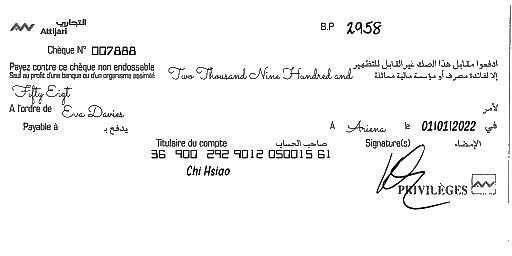 التجاري
Attijari
B.P 2958
Chèque N° 007888
Payez contre ce chèque non endossable
Sauf au profit d'une banque ou d'un organisme assimilé
Two Thousand Nine Hundred and
ادفعوا مقابل هذا الصك غير القابل للتظهير
إلا لفائدة مصرف أو مؤسسة مالية مماثلة
Fifty Eigt
A l'ordre de Eva Davies لأمر
Payable à يدفع بـ
A Ariena le 01/01/2022 في
Titulaire du compte صاحب الحساب Signature(s) الإمضاء
36 900 292 9012 050015 61
Chi Hsiao
PRIVILÈGES